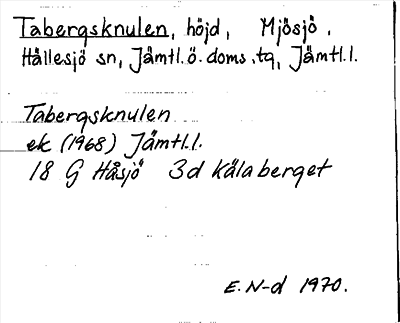 Tabergsknulen, höjd, Mjösjö.
Hällesjö sn, Jämtl.ö.doms.tg, Jämtl.l.
Tabergsknulen
ek (1968) Jämtl.l.
18 G Håsjö 3d Kälaberget
E.N-d 1970.